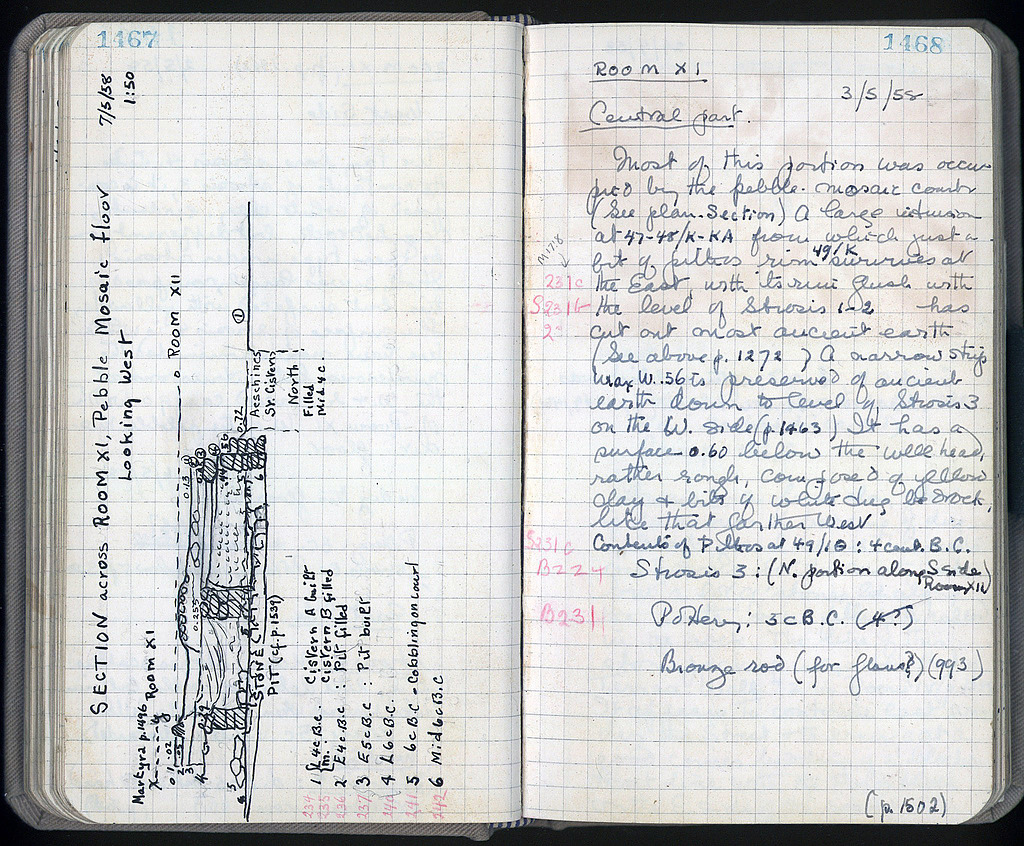 1467
7/5/58
1:50
SECTION across ROOM XI, Pebble Mosaic Floor
Looking West
Martyra p.1496
Room XI
Room XII
0
1 .02
2 .05
3
4
5
6
0.13
0.255
0.29
.50
0.72
1
Aeschines
St. Cistern
North
Filled
Mid 4 c.
STONE
PIT (cf. p. 1539)
234 1 L 4 c B.C. Cistern A built
235 m. cistern B filled
236 2 E 4 c B.C : Pit filled
237 3 E 5 c B.C : Pit built
4 L 6 c B.C.
241 5 6 c B.C - Cobbling on court
242 6 Mid 6 c B.C
1468
ROOM XI
3/5/58
Central part.
Most of this portion was occu-
pied by the pebble-mosaic court
(See plan-Section) A large intrusion
at 47-48/K-KA from which just a
bit of pithos rim survives at 49/K
the East, with its rim flush with
231c
the level of Strosis 1-2 has
S231b
cut out most ancient earth
(See above p. 1272) A narrow strip
max W. .56 is preserved of ancient
earth down to level of Strosis 3
on the W. side (p. 1463) It has a
surface 0.60 below the well head,
rather rough, composed of yellow
clay + bits of white dug bedrock,
like that farther West
S231c Contents of Pithos at 49/10 : 4 cent. B.C.
B224 Strosis 3 : (N. portion along S side)
Room XII
B231 Pottery : 5 c B.C. (4?)
Bronze rod (for glaux?) (993)
(p. 1502)